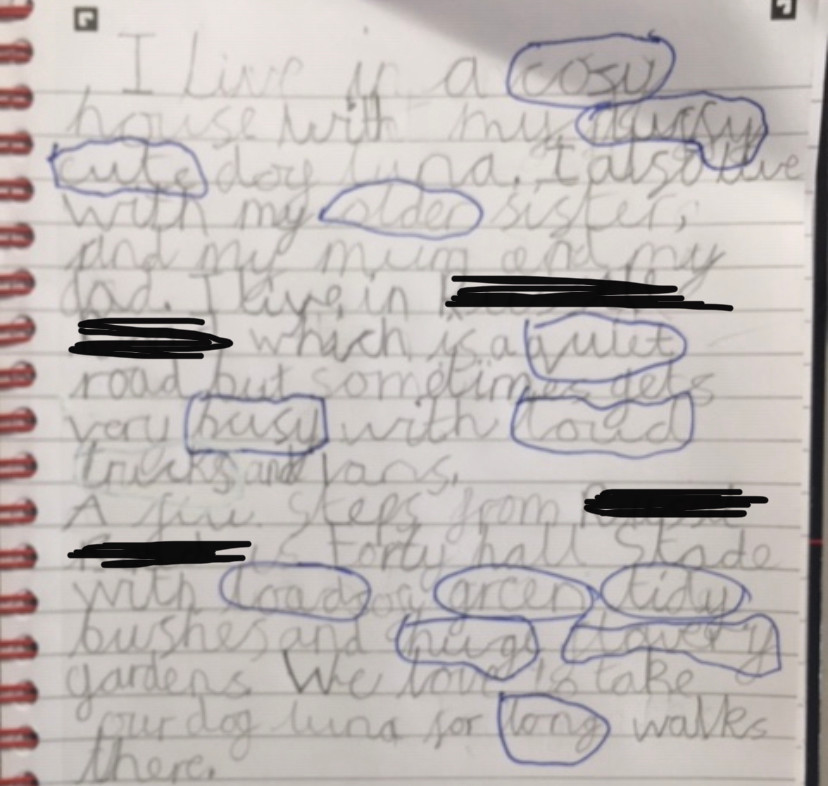 I live in a cosy
house with my fluffy
cute dog luna. I also live
with my older sister,
and my mum and my
dad. I live in
which is a quiet
road but sometimes gets
very busy with loud
trucks and vans.
A few steps from
is Forty hall Stade
with loads of green tidy
bushes and huge flowery
gardens. We love to take
our dog luna for long walks
there.